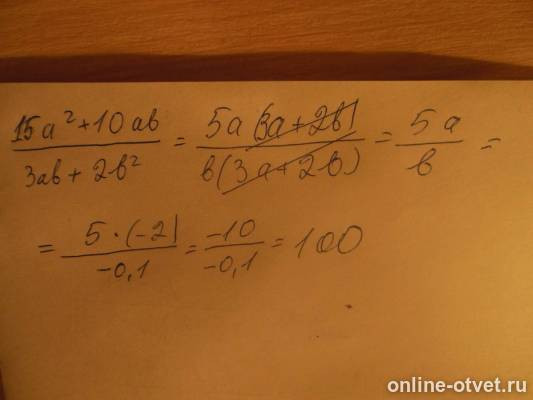 15a² + 10ab / 3ab + 2b² = 5a(3a + 2b) / b(3a + 2b) = 5a / b =
= 5 · (-2) / -0,1 = -10 / -0,1 = 100
online-otvet.ru